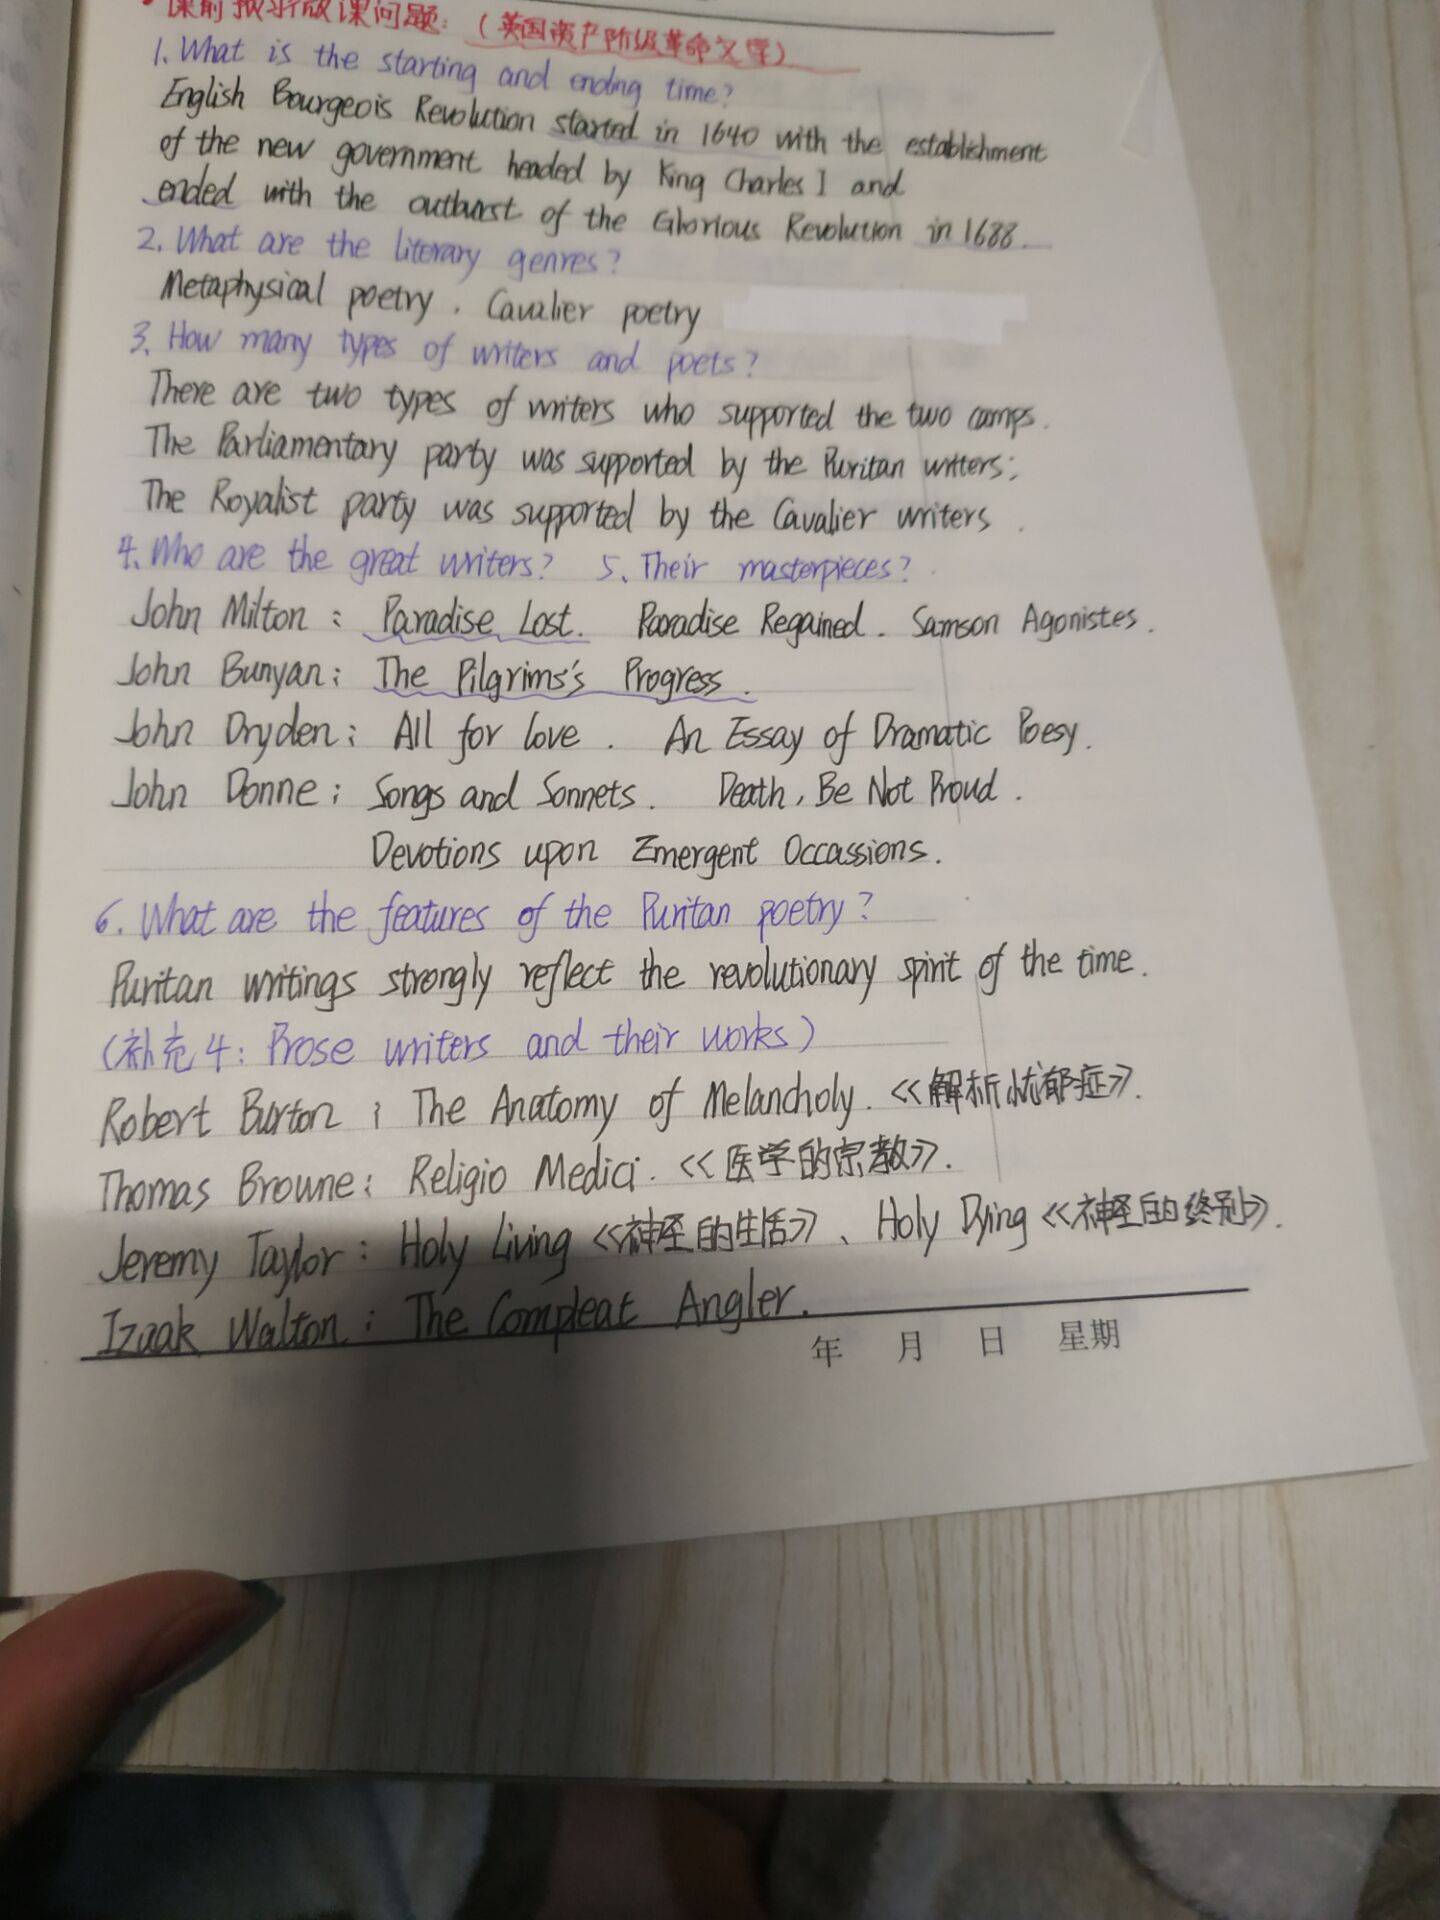 课前 版课问题：（英国资产阶级革命文学）
1. What is the starting and ending time?
English Bourgeois Revolution started in 1640 with the establishment
of the new government headed by King Charles I and
ended with the outburst of the Glorious Revolution in 1688.
2. What are the literary genres?
Metaphysical poetry. Cavalier poetry
3. How many types of writers and poets?
There are two types of writers who supported the two camps.
The Parliamentary party was supported by the Puritan writers;
The Royalist party was supported by the Cavalier writers.
4. Who are the great writers? 5. Their masterpieces?
John Milton: Paradise Lost. Paradise Regained. Samson Agonistes.
John Bunyan: The Pilgrims's Progress.
John Dryden: All for love. An Essay of Dramatic Poesy.
John Donne: Songs and Sonnets. Death, Be Not Proud.
Devotions upon Emergent Occassions.
6. What are the features of the Puritan poetry?
Puritan writings strongly reflect the revolutionary spirit of the time.
（补充4: Prose writers and their works）
Robert Burton: The Anatomy of Melancholy.《解析忧郁症》.
Thomas Browne: Religio Medici.《医学的宗教》.
Jeremy Taylor: Holy Living《神圣的生活》、Holy Dying《神圣的终别》.
Izaak Walton: The Compleat Angler.
年 月 日 星期